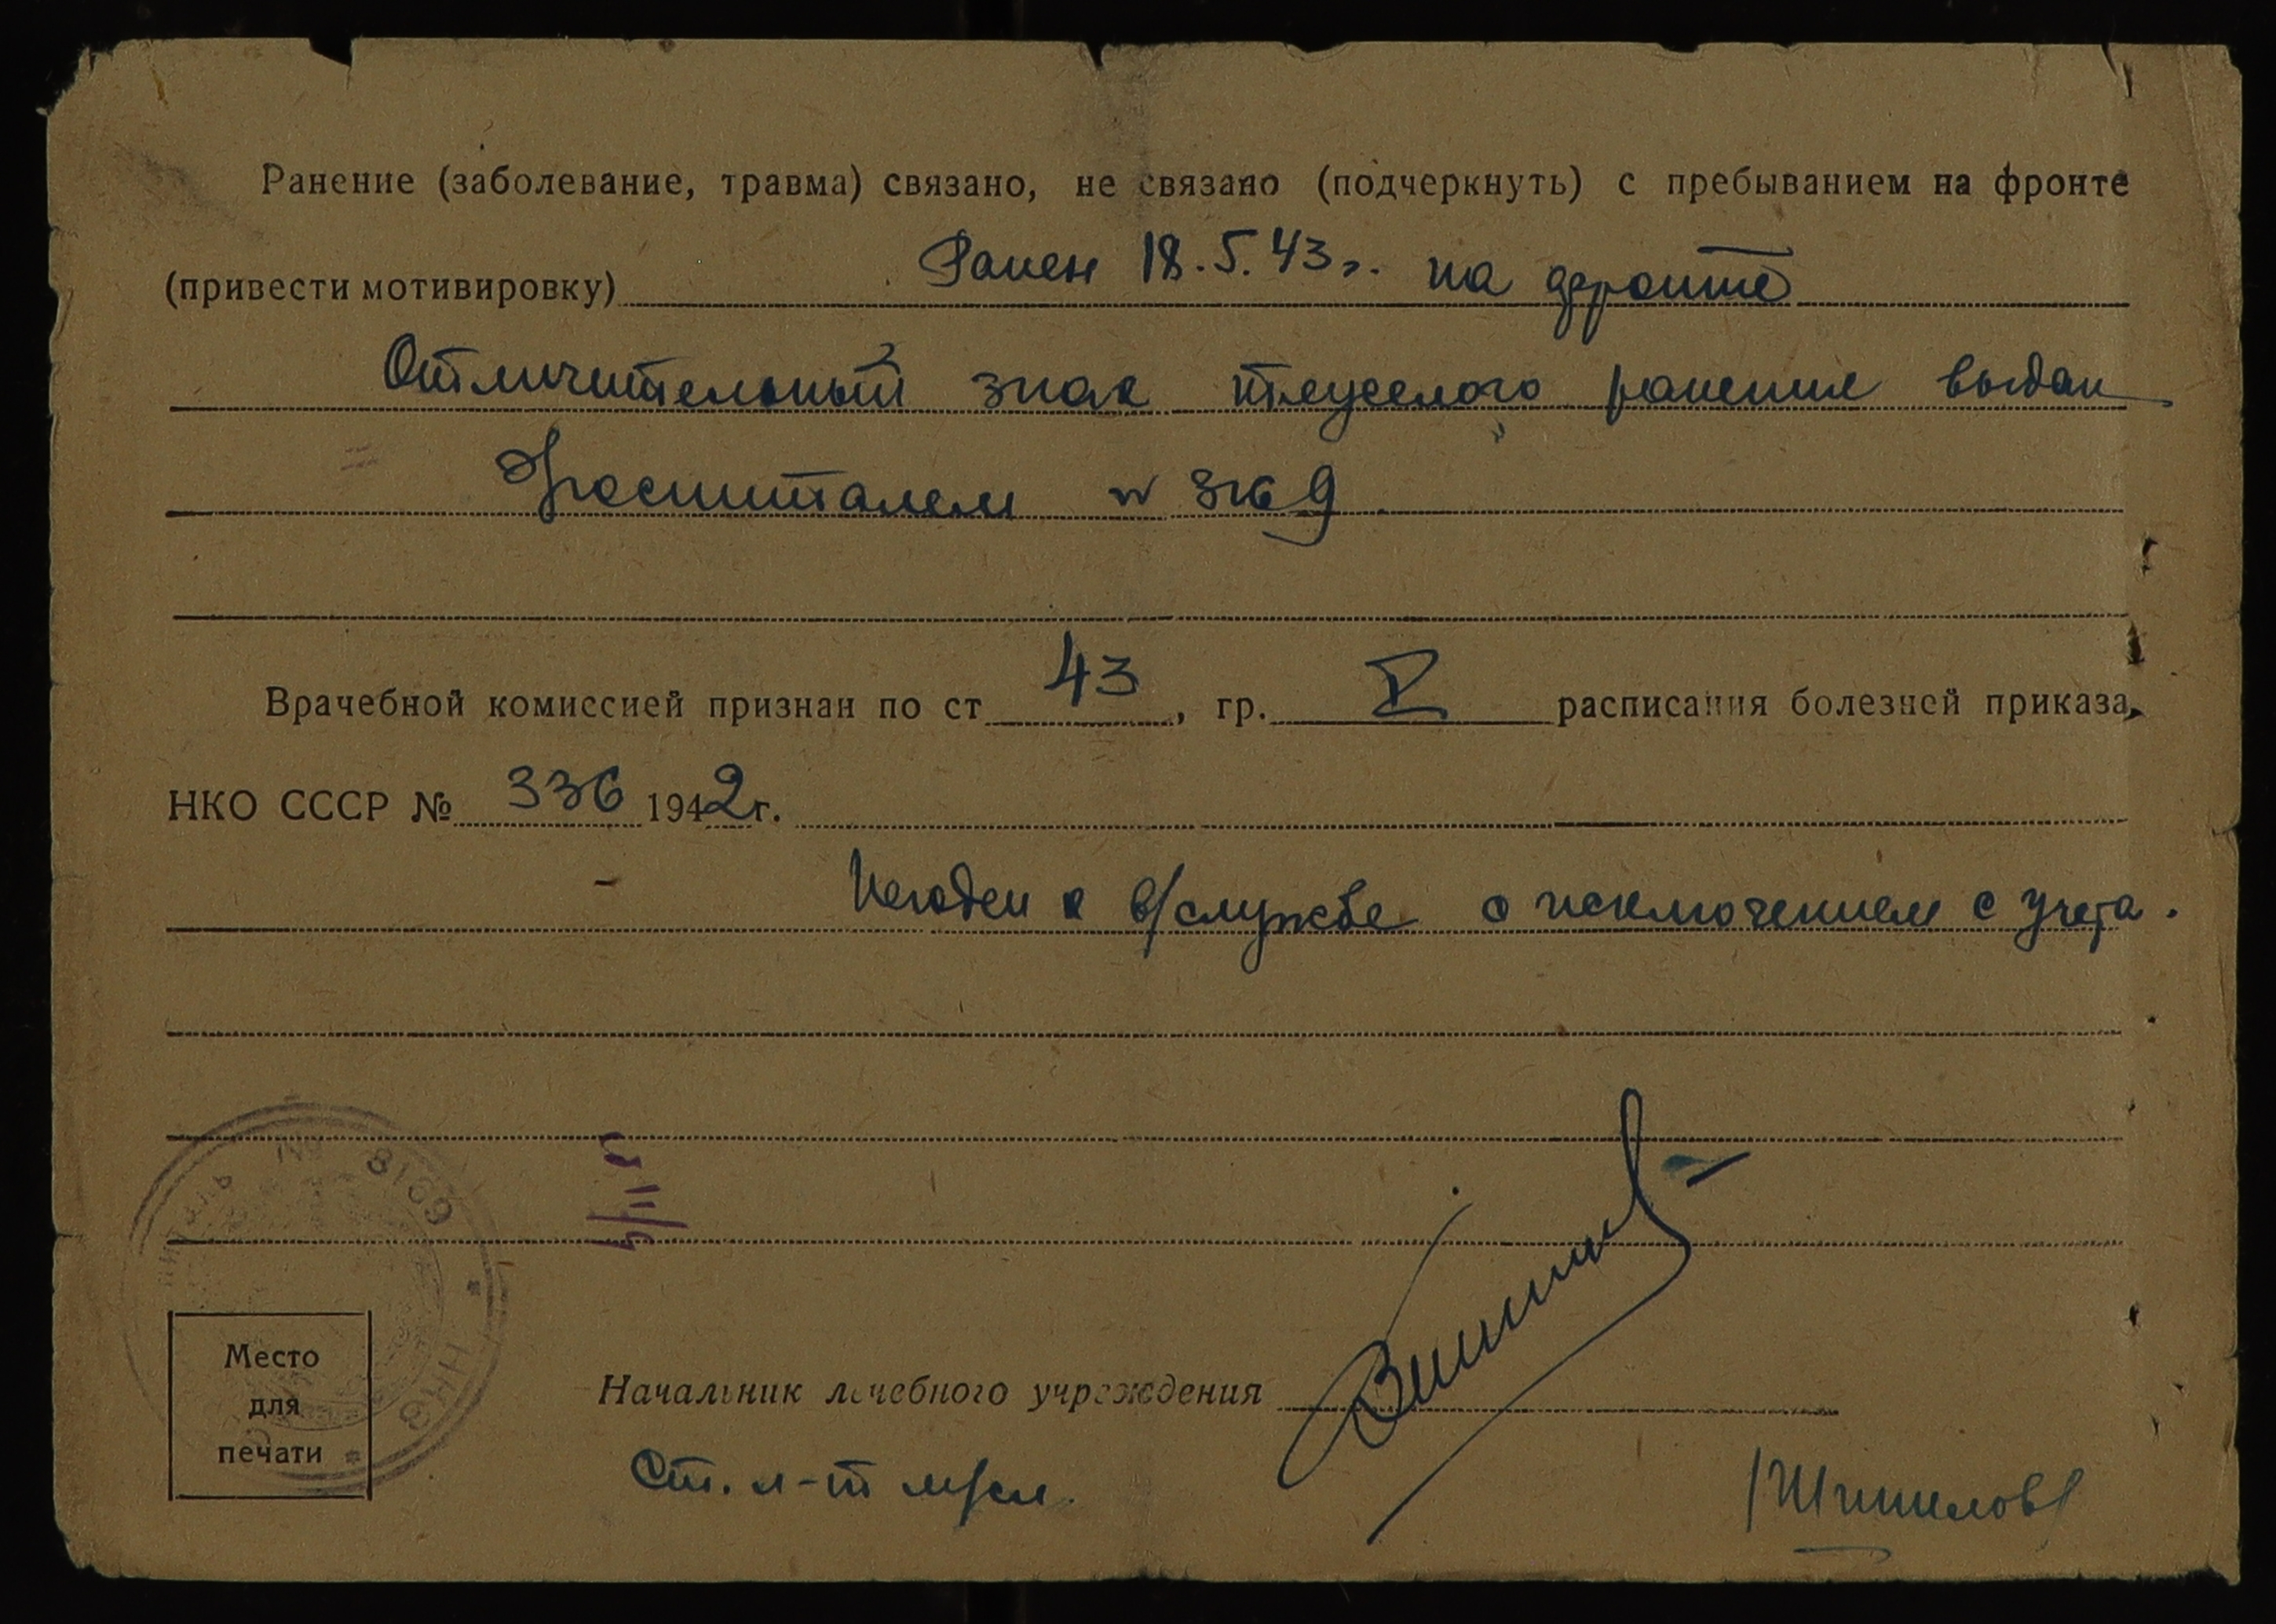 Ранение (заболевание, травма) связано, не связано (подчеркнуть) с пребыванием на фронте
(привести мотивировку) Ранен 18.5.43г. на фронте
Отличительный знак тяжелого ранения выдан
Госпиталем № 3169
Врачебной комиссией признан по ст 43, гр. I расписания болезней приказа
НКО СССР № 336 1942г.
Негоден к в/службе с исключением с учета.
6018
НКО
Место
для
печати
Начальник лечебного учреждения
Ст. л-т м/сл.